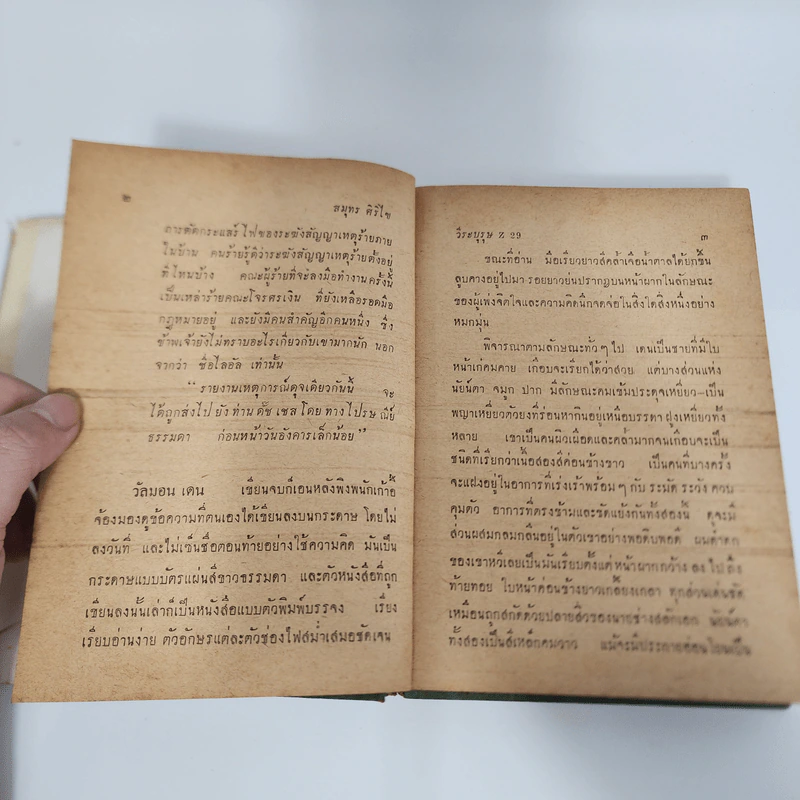 ๒
สมุทร ศิริไข
การตัดกระแสร์ไฟของระฆังสัญญาเหตุร้ายภาย
ในบ้าน คนร้ายรู้ดีว่าระฆังสัญญาเหตุร้ายตั้งอยู่
ที่ไหนบ้าง คณะผู้ร้ายที่จะลงมือทำงานครั้งนี้
เป็นเหล่าร้ายคณะโจรศรเงิน ที่ยังเหลือรอดมือ
กฎหมายอยู่ และยังมีคนสำคัญอีกคนหนึ่ง ซึ่ง
ข้าพเจ้ายังไม่ทราบอะไรเกี่ยวกับเขามากนัก นอก
จากว่า ชื่อไลอัล เท่านั้น
“รายงานเหตุการณ์ดุจเดียวกันนี้ จะ
ได้ถูกส่งไปยังท่านดัชเชสโดยทางไปรษณีย์
ธรรมดา ก่อนหน้าวันอังคารเล็กน้อย”
วัลมอน เดน เขียนจบก็เอนหลังพิงพนักเก้าอี้
จ้องมองดูข้อความที่ตนเองได้เขียนลงบนกระดาษ โดยไม่
ลงวันที่ และไม่เซ็นชื่อตอนท้ายอย่างใช้ความคิด มันเป็น
กระดาษแบบบัตรแผ่นสีขาวธรรมดา และตัวหนังสือที่ถูก
เขียนลงนั้นเล่าก็เป็นหนังสือแบบตัวพิมพ์บรรจง เรียง
เรียบอ่านง่าย ตัวอักษรแต่ละตัวช่องไฟสม่ำเสมอชัดเจน
วีระบุรุษ Z 29
๓
ขณะที่อ่าน มือเรียวยาวสีคล้ำเจือน้ำตาลได้ยกขึ้น
ลูบคางอยู่ไปมา รอยยาวย่นปรากฏบนหน้าผากในลักษณะ
ของผู้เพ่งจิตใจและความคิดนึกจดจ่อในสิ่งใดสิ่งหนึ่งอย่าง
หมกมุ่น
พิจารณาตามลักษณะทั่วๆไป เดนเป็นชายที่มีใบ
หน้าเก๋คมคาย เกือบจะเรียกได้ว่าสวย แต่บางส่วนแห่ง
นัยน์ตา จมูก ปาก มีลักษณะคมเข้มประดุจเหยี่ยว—เป็น
พญาเหยี่ยวตัวยงที่ร่อนหากินอยู่เหนือบรรดาฝูงเหยี่ยวทั้ง
หลาย เขาเป็นคนผิวเผือดและคล้ำมากจนเกือบจะเป็น
ชนิดที่เรียกว่าเนื้อสองสีค่อนข้างขาว เป็นคนที่บางครั้ง
จะแฝงอยู่ในอาการที่เร่งเร้าพร้อมๆกับ ระมัด ระวัง ควบ
คุมตัว อาการที่ตรงข้ามและขัดแย้งกันทั้งสองนี้ ดูจะมี
ส่วนผสมกลมกลืนอยู่ในตัวเขาอย่างพอดิบพอดี ผมดำดก
ของเขาหวีเลยเป็นมันเรียบตั้งแต่หน้าผากกว้าง ลงไปถึง
ท้ายทอย ใบหน้าค่อนข้างยาวเกลี้ยงเกลา ทุกส่วนเด่นชัด
เหมือนถูกสกัดด้วยปลายสิ่วของนายช่างสลักเอก นัยน์ตา
ทั้งสองเป็นสีเหล็กคมวาว แม้จะมีประกายอ่อนโยนเป็น